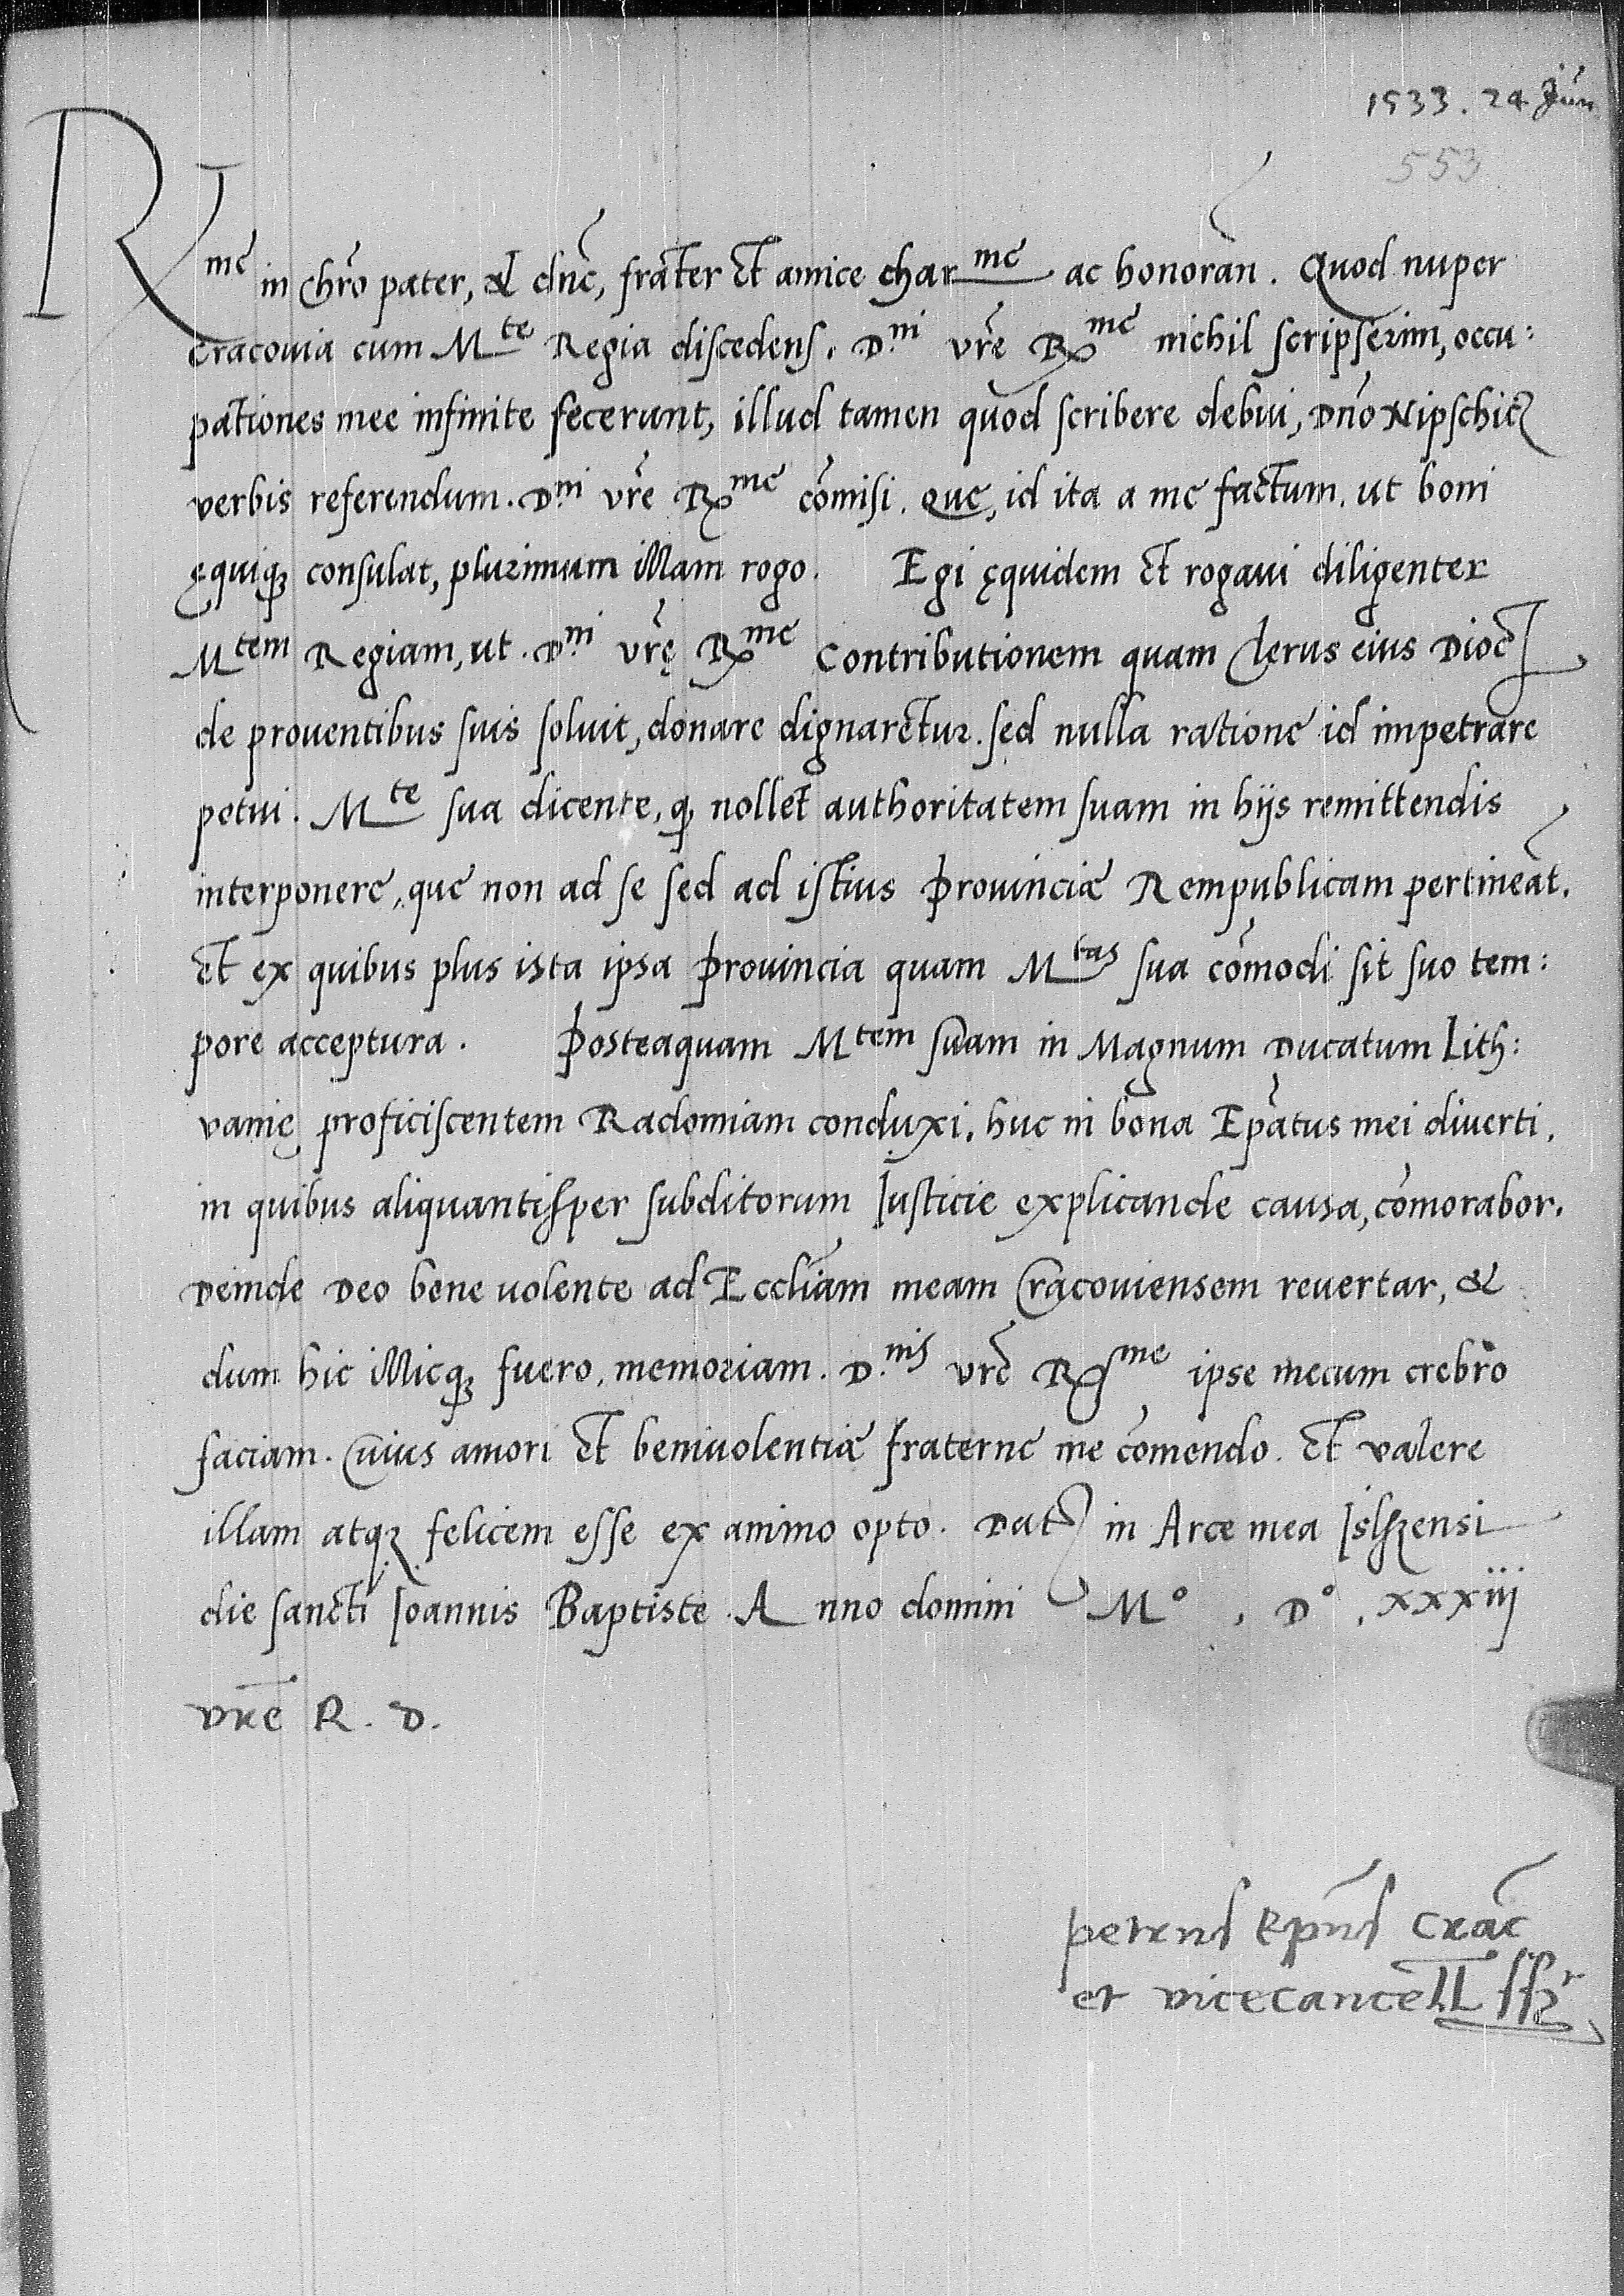 1533. 24 Jun
553
R me in chro pater, & dne, frater et amice char me ac honoran. Quod nuper
Cracovia cum M te Regia discedens. D. ni vre R me nichil scripserim, occu:
pationes mee infinite fecerunt, illud tamen quod scribere debui, Dno Nipschicz
verbis referendum. D. ni vre R me comisi. Que, id ita a me factum. ut boni
ęquiq3 consulat, plurimum illam rogo. Egi ęquidem et rogavi diligenter
M tem Regiam, ut. D. ni vrę R me contributionem quam Clerus eius Dioc
de proventibus suis solvit, donare dignaretur. sed nulla ratione id impetrare
potui. M te sua dicente, q nollet authoritatem suam in hijs remittendis
interponere, que non ad se sed ad istius Provinciæ Rempublicam pertineat.
Et ex quibus plus ista ipsa Provincia quam M tas sua comodi sit suo tem:
pore acceptura. Posteaquam M tem suam in Magnum Ducatum Lith:
vanię proficiscentem Radomiam conduxi. huc in bona Epatus mei diverti.
in quibus aliquantisper subditorum Iusticie explicande causa, comorabor.
Deinde Deo bene volente ad Eccliam meam Cracoviensem revertar, &
dum hic illicq3 fuero, memoriam. D. nis vre R me ipse mecum crebro
faciam. Cuius amori et benivolentiæ fraterne me comendo. Et valere
illam atq3 felicem esse ex animo opto. Dat in Arce mea Islzensi
die sancti Ioannis Baptiste. Anno domini M° . D° . xxxiij
vre R. D.
Petrus Epus Crac
et vicecancell sszt